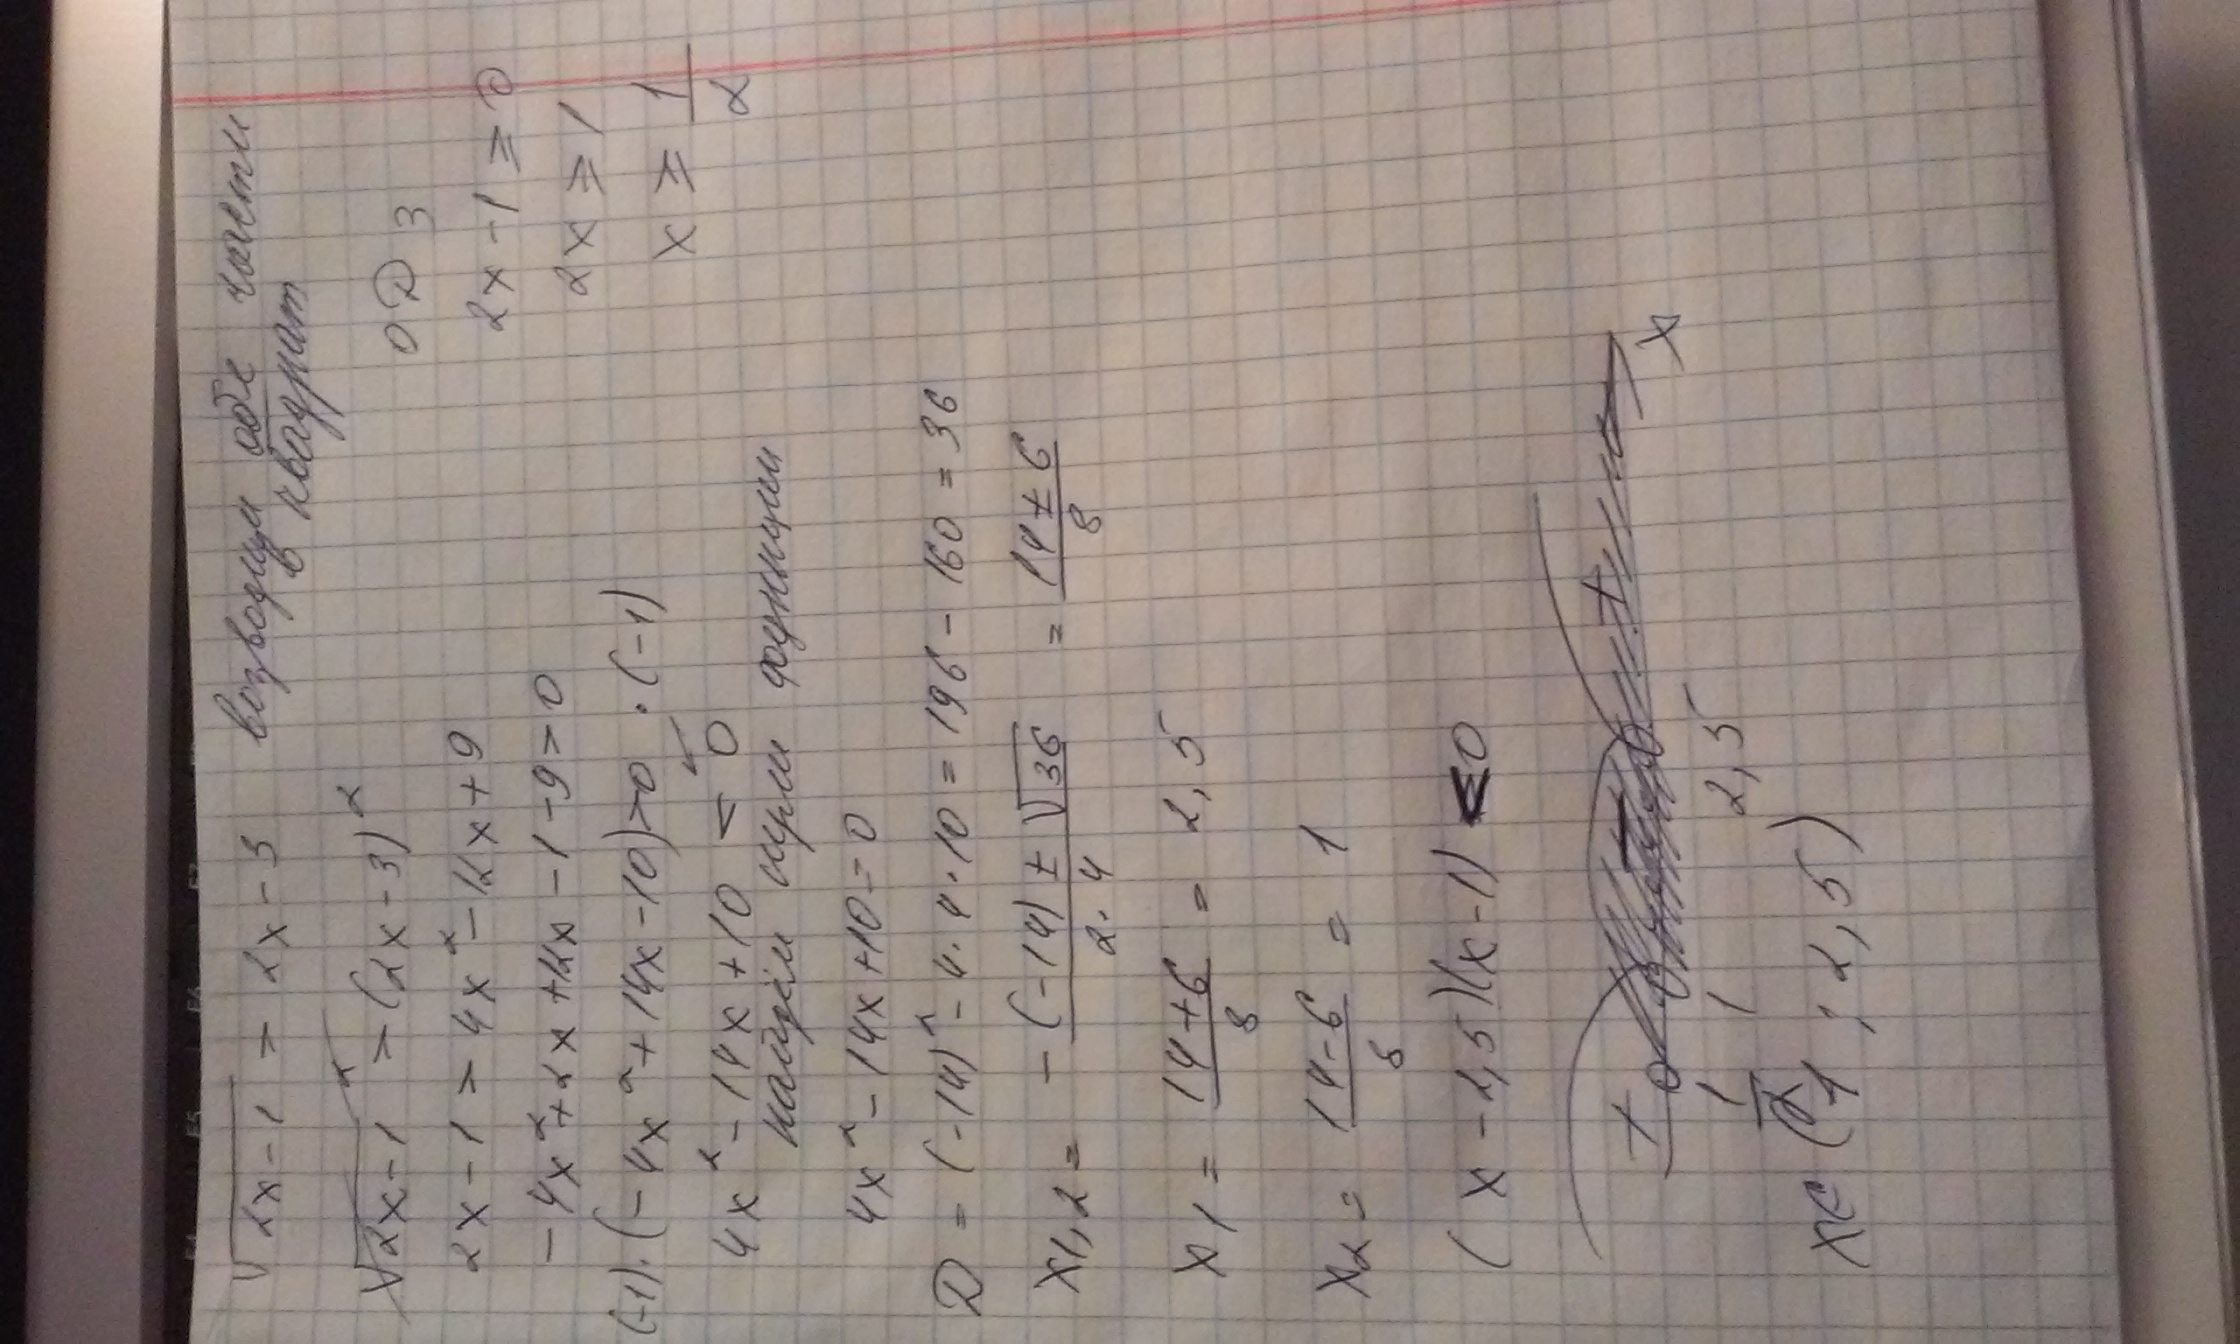 √2x-1 > 2x-3 возводим обе части
в квадрат
√2x-1² > (2x-3)²
ОДЗ
2x-1 > 4x²-12x+9
2x-1 ≥ 0
-4x²+2x+12x-1-9>0
2x ≥ 1
(-1)·(-4x²+14x-10)>0 ·(-1)
x ≥ 1/2
4x²-14x+10 < 0
найдём нули функции
4x²-14x+10=0
D = (-14)²-4·4·10=196-160=36
x1,2= -(-14)±√36 / 2·4 = 14±6 / 8
x1= 14+6 / 8 = 2,5
x2= 14-6 / 8 = 1
(x-2,5)(x-1) < 0
+ - + x
1/2 1 2,5
x∈( ; 2,5)